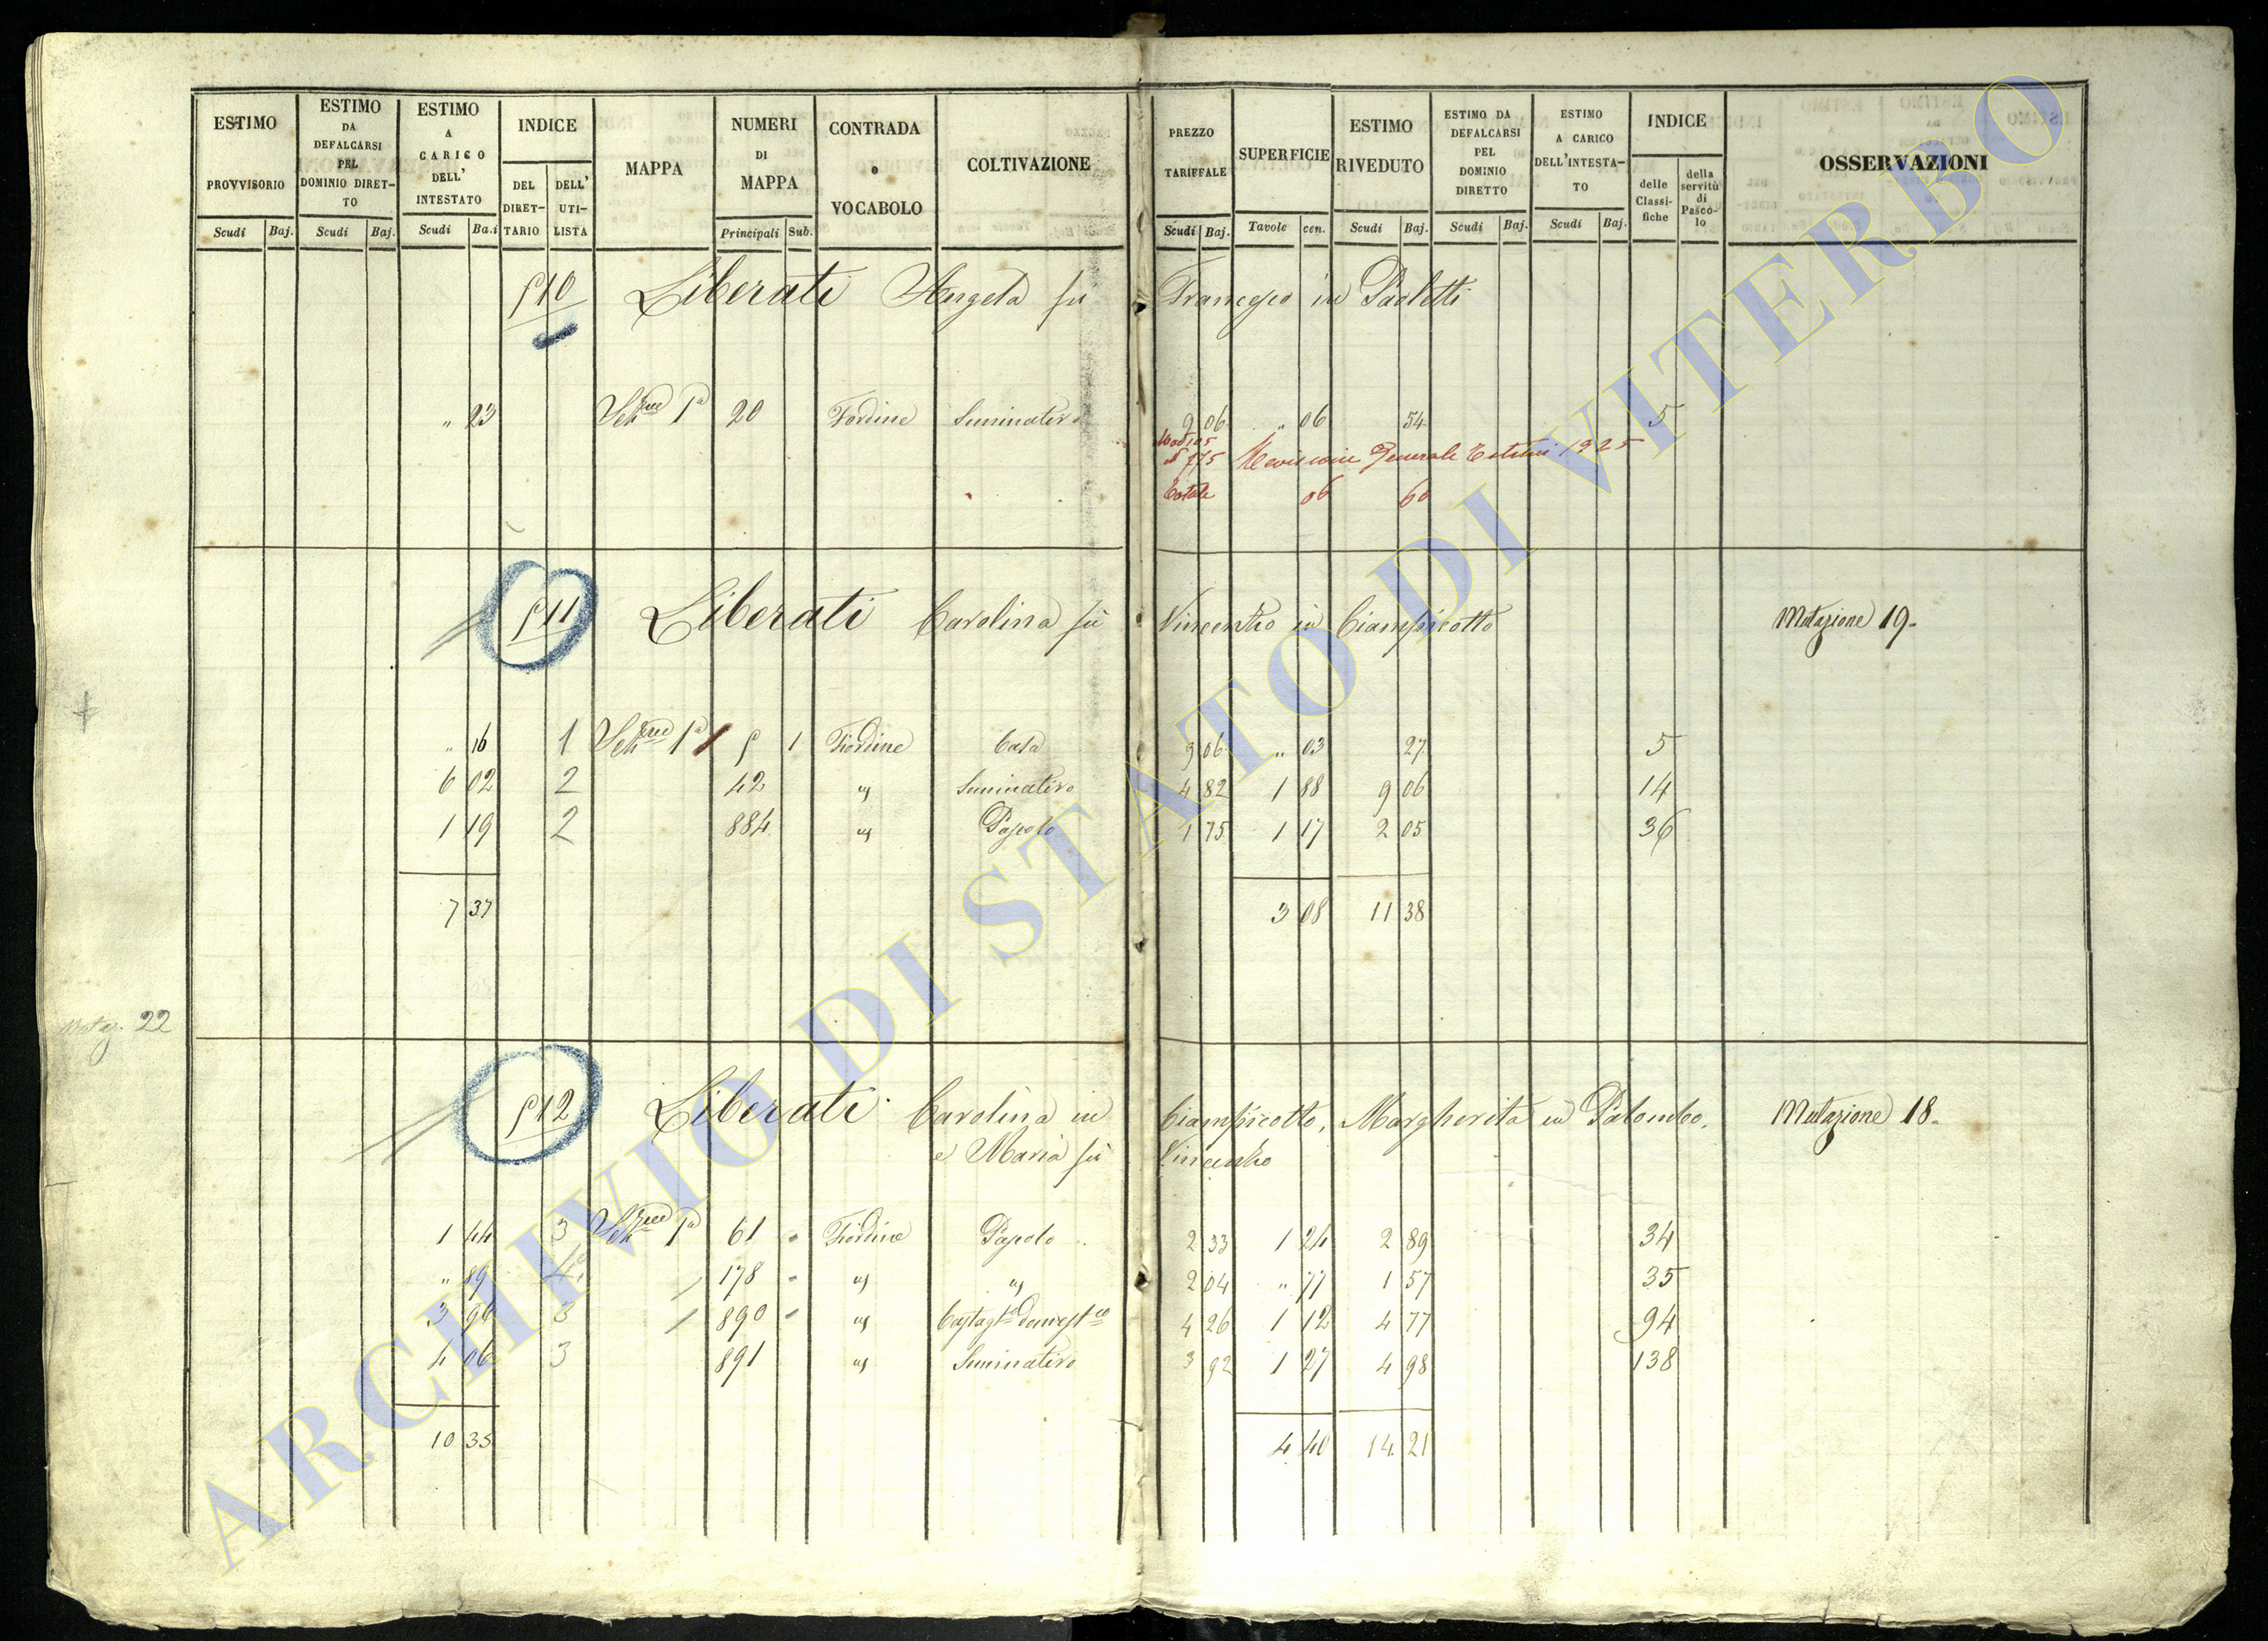 ESTIMO PROVVISORIO Scudi Baj.
ESTIMO DA DEFALCARSI PEL DOMINIO DIRET-TO Scudi Baj.
ESTIMO A CARICO DELL' INTESTATO Scudi Ba.i
INDICE DEL DIRET-TARIO DELL' UTI-LISTA
MAPPA
NUMERI DI MAPPA Principali Sub.
CONTRADA o VOCABOLO
COLTIVAZIONE
PREZZO TARIFFALE Scudi Baj.
SUPERFICIE Tavole cen.
ESTIMO RIVEDUTO Scudi Baj.
ESTIMO DA DEFALCARSI PEL DOMINIO DIRETTO Scudi Baj.
ESTIMO A CARICO DELL'INTESTA-TO Scudi Baj.
INDICE delle Classi-fiche della servitù di Pasco-lo
OSSERVAZIONI
510 Liberati Angela fù Francesco in Paoletti
" 23 Sez.ne 1a 20 Fiordine Seminativo 9 06 " 06 54 5
N 775 Revisione Generale Estimi 1925
Totale 06 60
511 Liberati Carolina fù Vincenzo in Ciampicotto Mutazione 19.
" 16 1 Sez.ne 1a 5 1 Fiordine Casa 9 06 " 03 27 5
6 02 2 42 " Seminativo 4 82 1 88 9 06 14
1 19 2 884 " Pascolo 1 75 1 17 2 05 36
7 37 3 08 11 38
Mutaz. 22
512 Liberati Carolina in Ciampicotto, Margherita in Palombo, Mutazione 18.
e Maria fù Vincenzo
1 44 3 Sez.ne 1a 61 " Fiordine Pascolo 2 33 1 24 2 89 34
" 89 4 178 " " " 2 04 " 77 1 57 35
3 96 3 890 " " 4 26 1 12 4 77 94
4 06 3 891 " Seminativo 3 92 1 27 4 98 138
10 35 4 40 14 21
ARCHIVIO DI STATO DI VITERBO